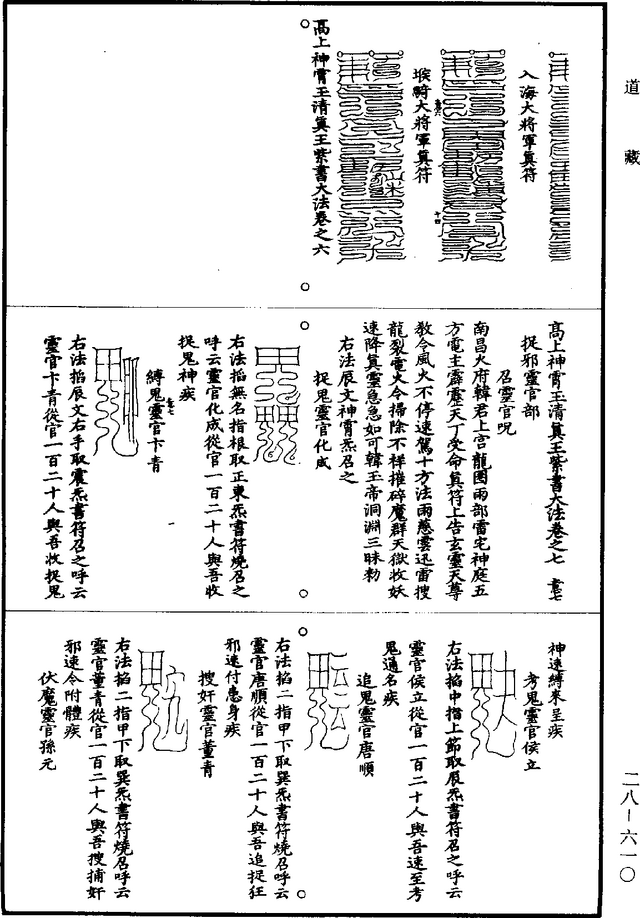 道藏
入海大將軍真符
堠騎大將軍真符
高上神霄玉清真王紫書大法卷之六
高上神霄玉清真王紫書大法卷之七
捉邪靈官部
召靈官呪
南昌火府韓君上宮龍圉雨部雷宅神庭五
方電主霹靂天丁受命真符上告玄靈天尊
教令風火不停速駕十方法雨慈雲迅雷搜
龍裂電火令掃除不祥摧碎魔群天獄收妖
速降真靈急急如可韓玉帝洞淵三昧勑
右法辰文神霄炁召之
捉鬼靈官化成
右法掐無名指根取正東炁書符燒召之
呼云靈官化成從官一百二十人與吾收
捉鬼神疾
縛鬼靈官卞青
右法掐辰文右手取震炁書符召之呼云
靈官卞青從官一百二十人與吾收捉鬼
神速縛來至疾
考鬼靈官侯立
右法掐中指上節取辰炁書符召之呼云
靈官侯立從官一百二十人與吾速至考
鬼通名疾
追鬼靈官唐順
右法掐二指甲下取巽炁書符燒召呼云
靈官唐順從官一百二十人與吾追捉狂
邪速付患身疾
搜奸靈官董青
右法掐二指甲下取巽炁書符燒召呼云
靈官董青從官一百二十人與吾搜捕奸
邪速令附體疾
伏魔靈官孫元
二八-六一〇